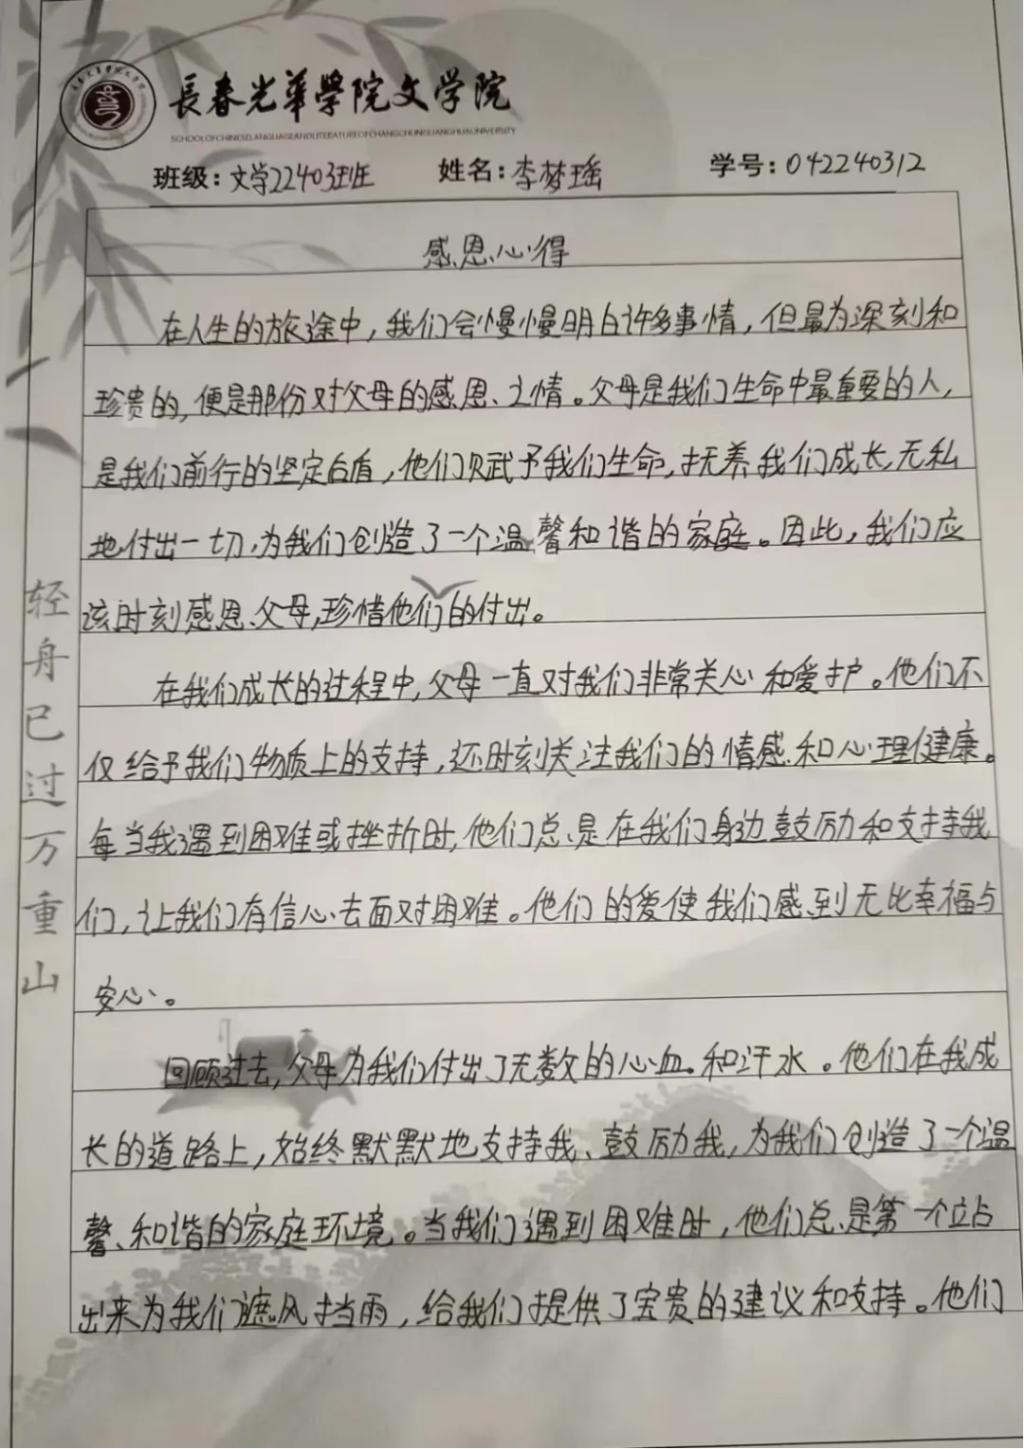 長春光華學院文学院
SCHOOL OF CHINESE LANGUAGE AND LITERATURE OF CHANGCHUN GUANGHUA UNIVERSITY
班级:文学22403班 姓名:李梦瑶 学号:042240312
感恩心得
在人生的旅途中,我们会慢慢明白许多事情,但最为深刻和
珍贵的,便是那份对父母的感恩之情。父母是我们生命中最重要的人,
是我们前行的坚定后盾,他们赋予我们生命,抚养我们成长,无私
地付出一切,为我们创造了一个温馨和谐的家庭。因此,我们应
该时刻感恩父母,珍惜他们的付出。
在我们成长的过程中,父母一直对我们非常关心和爱护。他们不
仅给予我们物质上的支持,还时刻关注我们的情感和心理健康。
每当我遇到困难或挫折时,他们总是在我们身边鼓励和支持我
们,让我们有信心去面对困难。他们的爱使我们感到无比幸福与
安心。
回顾过去,父母为我们付出了无数的心血和汗水。他们在我成
长的道路上,始终默默地支持我、鼓励我,为我们创造了一个温
馨、和谐的家庭环境。当我们遇到困难时,他们总是第一个站
出来为我们遮风挡雨,给我们提供了宝贵的建议和支持。他们
轻舟已过万重山